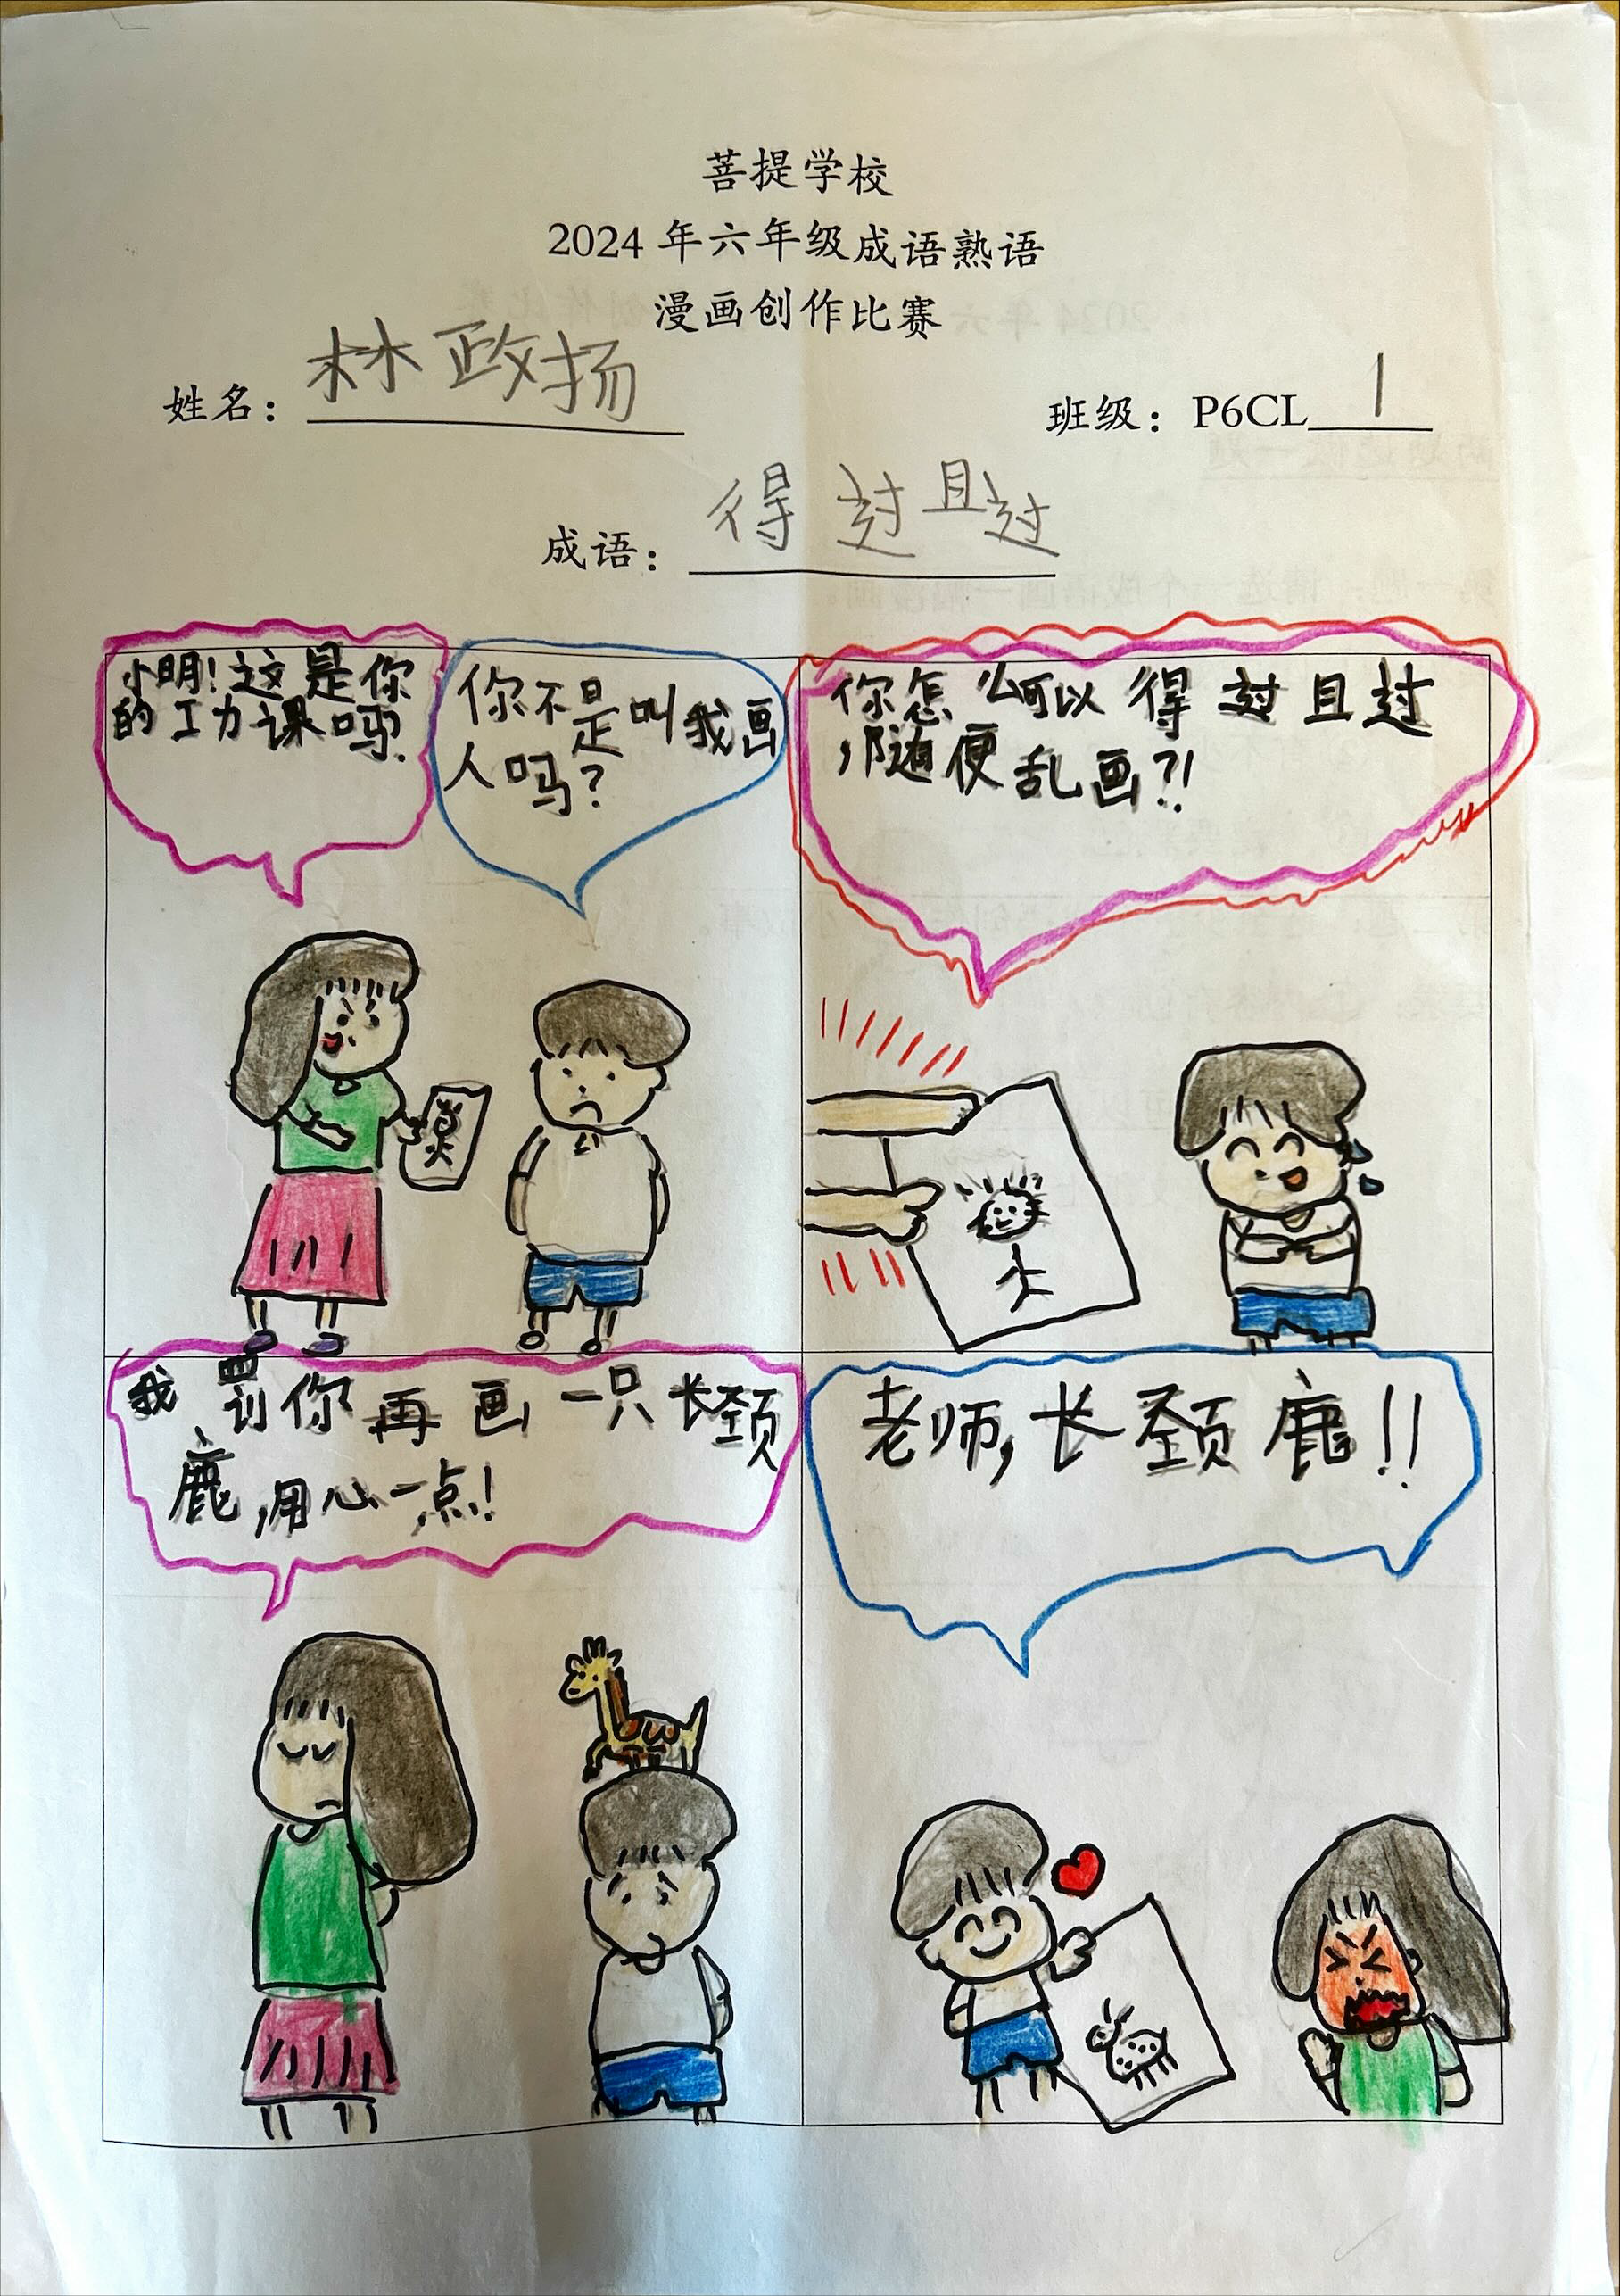 菩提学校
2024 年六年级成语熟语
漫画创作比赛
姓名：林政扬
班级：P6CL 1
成语：得过且过
小明!这是你
的工力课吗?
你不是叫我画
人吗?
你怎么可以得过且过
,随便乱画?!
我罰你再画一只长颈
鹿,用心一点!
老师,长颈鹿!!